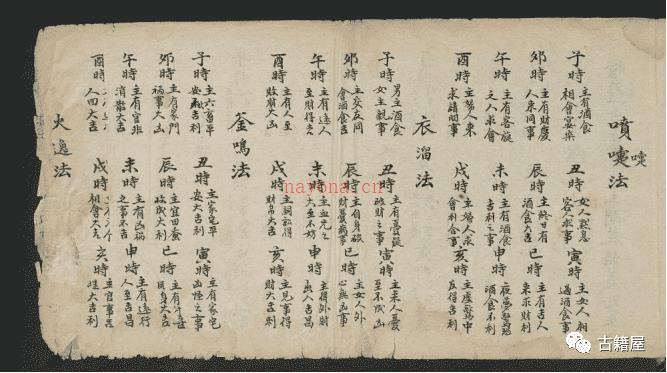 噴嚏法
嚏
子時 主有酒食 相會宴樂 丑時 女人思息 客人求事 寅時 主女人相 過酒食事
卯時 主有財慶 人来同事 辰時 主終日有 酒食大吉 巳時 主有吉人 来求財利
午時 主有客旅 之人求會 未時 主有酒食 吉利之事 申時 夜夢驚恐 酒食不利
酉時 主婦人来 求請問事 戌時 主婦人求 會和合事 亥時 主虛驚中 反得吉利
衣溜法
子時 男主酒食 女主親事 丑時 主有憂疑 破財之事 寅時 主来人憂 至不成凶
卯時 主交友同 會酒食吉 辰時 主自身破 財憂病事 巳時 主女人外 心與凶事
午時 主有遠人 至財得之 未時 主血光之 大至不好 申時 主得外財 出人吉昌
酉時 主有人至 敗財大凶 戌時 主詞訟得 財帛大吉 亥時 主見事得 財大吉利
釜鳴法
子時 主六畜平 安大吉利 丑時 主家宅平 安大吉利 寅時 主有家宅 凶怪之事
卯時 主有家門 禍事大凶 辰時 主宜田蚕 收成大利 巳時 大吉
午時 主有官非 消散大吉 未時 主有凶禍 之事不吉 申時 主有遠行 人至吉昌
酉時 人四大吉 戌時 相會大吉 亥時 主官事吉 大吉利
火逸法
nayona.cn
古籍屋